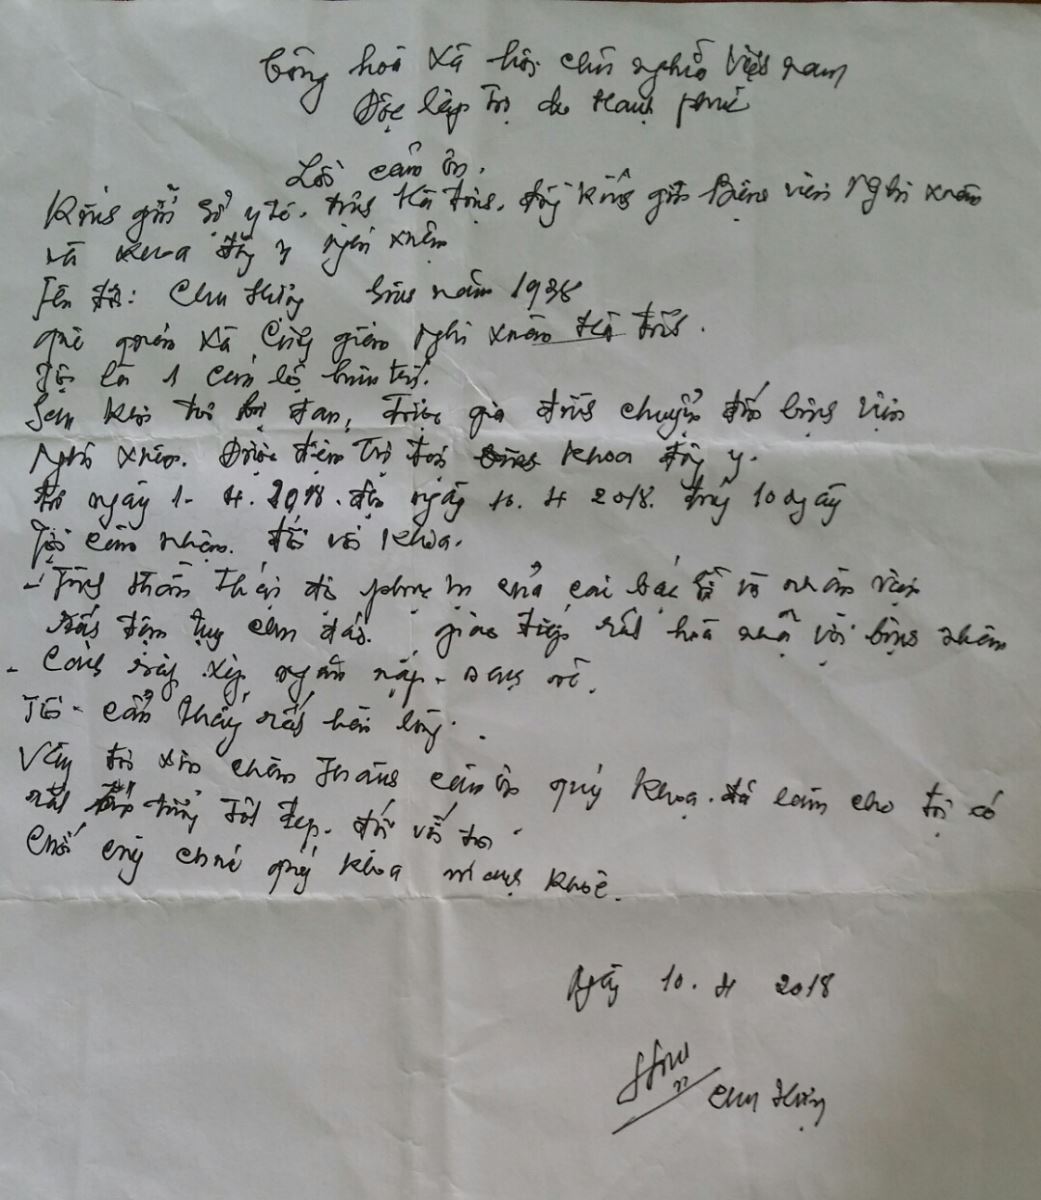 Cộng hoà xã hội chủ nghĩa Việt nam
Độc lập Tự do Hạnh phúc
Lời cảm ơn.
Kính gửi Sở y tế. tỉnh Hà tĩnh. đồng kính gửi Bệnh viện Nghi xuân
và khoa đông y nghi xuân
Tên tôi: Chu Hưng sinh năm 1938
quê quán xã gián Nghi xuân Hà tĩnh.
Tôi là 1 cán bộ hưu trí.
Sau khi tôi bị đau, được gia đình chuyển đến bệnh viện
Nghi xuân. Được điều trị tại khoa đông y.
từ ngày 1- 4. 2018. đến ngày 10. 4 2018. 10 ngày
Tôi cảm nhận. đối với khoa.
- Tinh thần thái độ phục vụ của các bác sĩ và nhân viên
rất tận tụy chu đáo. giao tiếp rất hoà nhã với bệnh nhân
- Cách sắp xếp ngăn nắp.
Tôi cảm thấy rất hài lòng.
Vậy tôi xin chân thành cảm ơn quý khoa. đã làm cho tôi có
rất tốt đẹp. đối với tôi
Cuối cùng chúc quý khoa mạnh khoẻ.
Ngày 10. 4 2018
Chu Hưng